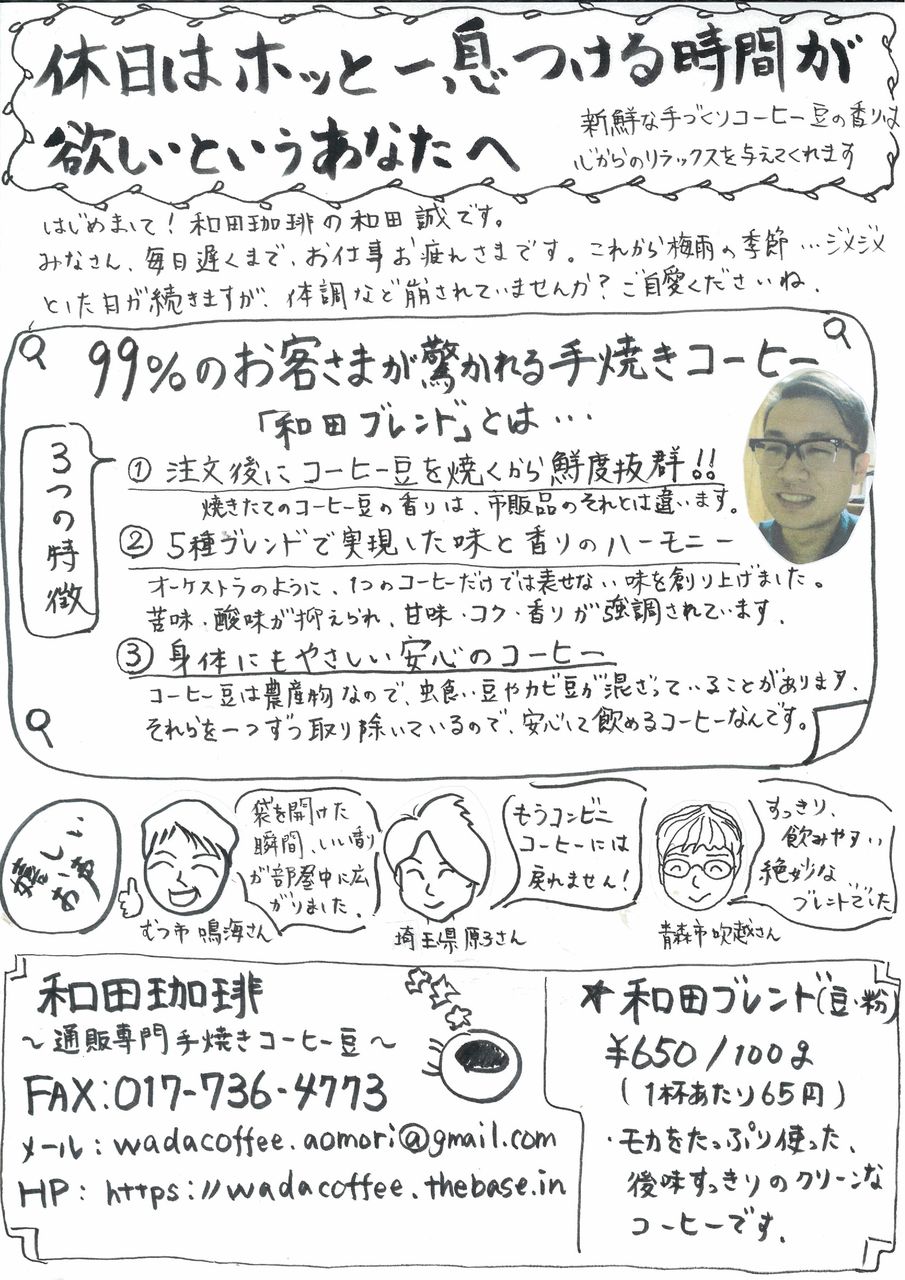 休日はホッと一息つける時間が
欲しいというあなたへ
新鮮な手づくりコーヒー豆の香りは
心からのリラックスを与えてくれます
はじめまして！和田珈琲の和田誠です。
みなさん、毎日遅くまで、お仕事お疲れさまです。これから梅雨の季節…ジメジメ
とした日が続きますが、体調など崩されていませんか？ご自愛くださいね。
99%のお客さまが驚かれる手焼きコーヒー
「和田ブレンド」とは…
3つの特徴
① 注文後にコーヒー豆を焼くから鮮度抜群!!
焼きたてのコーヒー豆の香りは、市販品のそれとは違います。
② 5種ブレンドで実現した味と香りのハーモニー
オーケストラのように、1つのコーヒーだけでは表せない味を創り上げました。
苦味・酸味が抑えられ、甘味・コク・香りが強調されています。
③ 身体にもやさしい安心のコーヒー
コーヒー豆は農産物なので、虫食い豆やカビ豆が混ざっていることがあります。
それらを一つずつ取り除いているので、安心して飲めるコーヒーなんです。
嬉しい
お声
袋を開けた
瞬間、いい香り
が部屋中に広
がりました。
むつ市 鳴海さん
もうコンビニ
コーヒーには
戻れません！
埼玉県 原子さん
すっきり、
飲みやすい
絶妙な
ブレンドでした
青森市 吹越さん
和田珈琲
～通販専門手焼きコーヒー豆～
FAX:017-736-4773
メール：wadacoffee.aomori@gmail.com
HP：https://wadacoffee.thebase.in
★和田ブレンド(豆・粉)
¥650/100g
(1杯あたり65円)
・モカをたっぷり使った、
後味すっきりのクリーンな
コーヒーです。